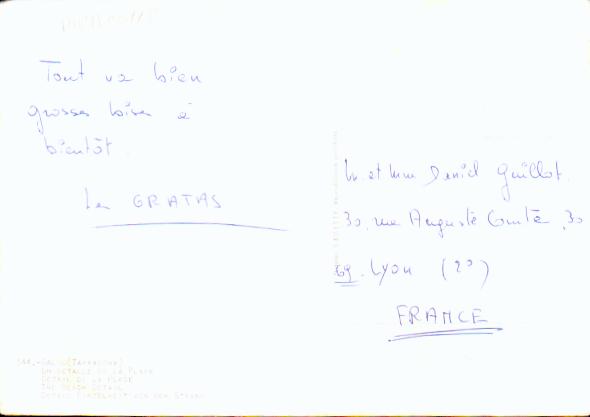 Tout va bien
grosses bises à
bientôt.
Les GRATAS
Mr et Mme Daniel Guillot
30, rue Auguste Comte, 30
69. Lyon (2°)
FRANCE
UN DETALLE DE LA PLAYA
DETAIL DE LA PLAGE
THE BEACH DETAIL